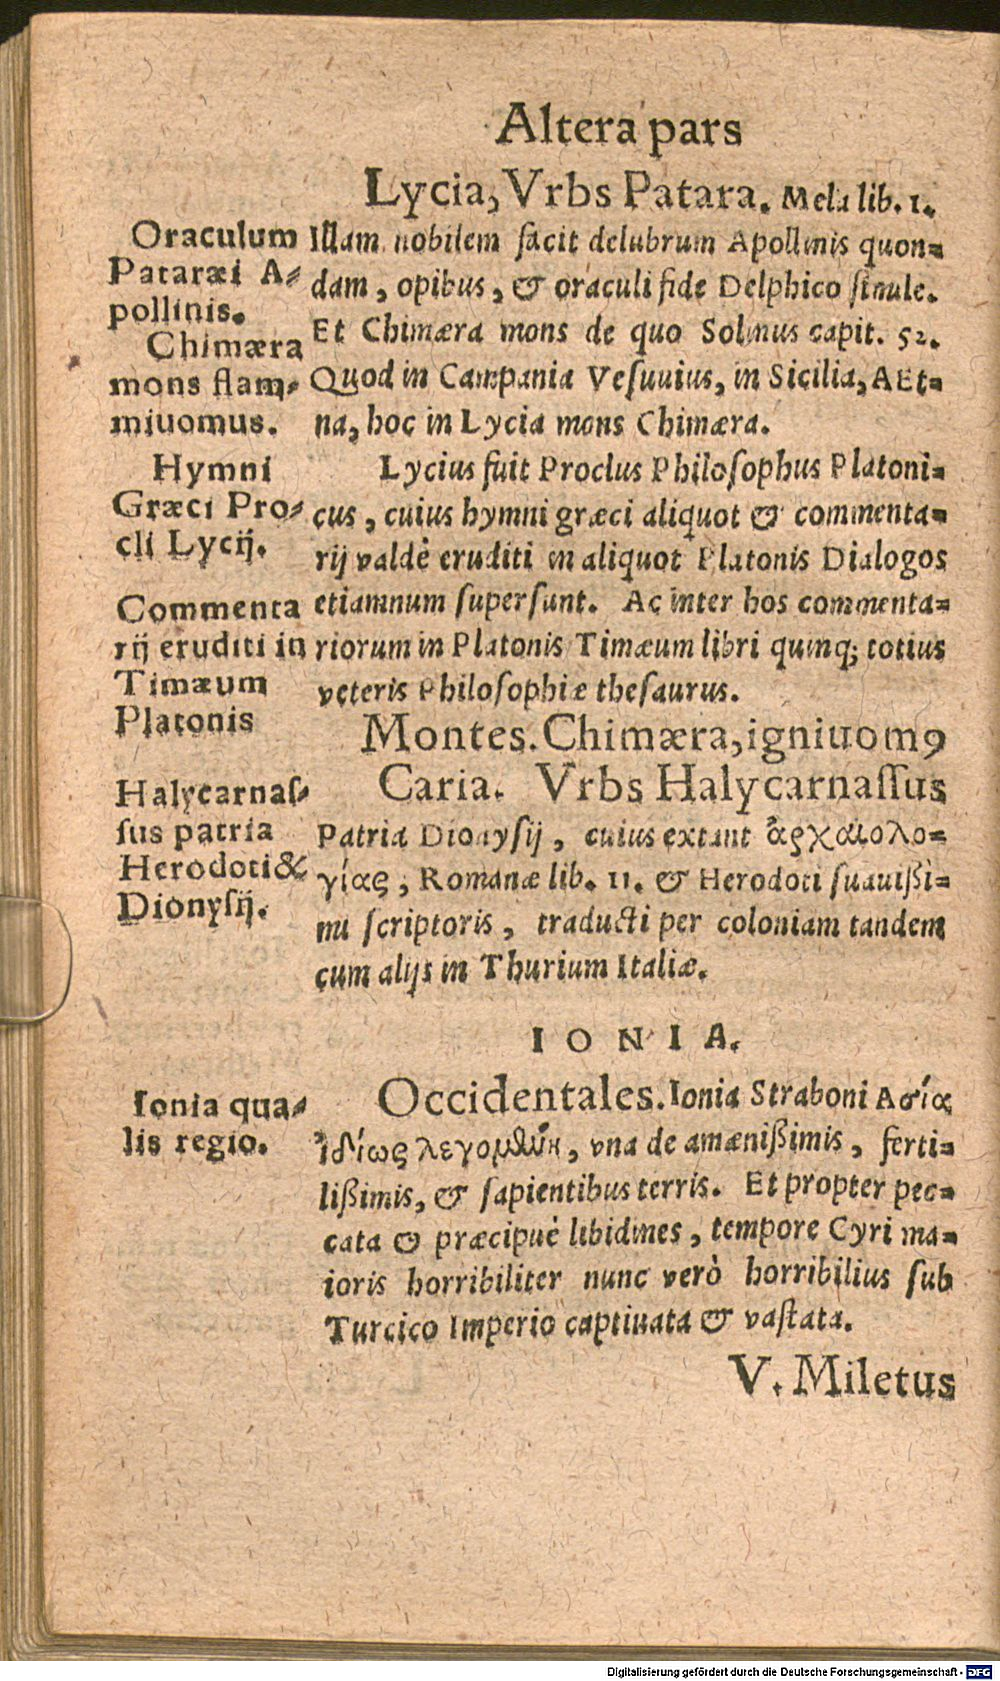 Altera pars
Lycia, Vrbs Patara. Mela lib. 1.
Oraculum
Pataræi A-
pollinis.
Chimæra
mons flam-
miuomus.
Hymni
Græci Pro-
cli Lycij.
Commenta
rij eruditi in
Timæum
Platonis
Illam nobilem facit delubrum Apollinis quon-
dam, opibus, & oraculi fide Delphico simile.
Et Chimæra mons de quo Solinus capit. 52.
Quod in Campania Vesuuius, in Sicilia, AEt-
na, hoc in Lycia mons Chimæra.
Lycius fuit Proclus Philosophus Platoni-
cus, cuius hymni græci aliquot & commenta-
rij valdè eruditi in aliquot Platonis Dialogos
etiamnum supersunt. Ac inter hos commenta-
riorum in Platonis Timæum libri quinq; totius
veteris Philosophiæ thesaurus.
Montes. Chimæra, igniuomꝰ
Caria. Vrbs Halycarnassus
Halycarnas-
sus patria
Herodoti &
Dionysij.
Patria Dionysij, cuius extant ἀρχαιολο-
γίας, Romanæ lib. 11. & Herodoti suauißi-
mi scriptoris, traducti per coloniam tandem
cum alijs in Thurium Italiæ.
IONIA.
Ionia qua-
lis regio.
Occidentales. Ionia Straboni Ασίας
ἰδίως λεγομένη, vna de amænißimis, ferti-
lißimis, & sapientibus terris. Et propter pec-
cata & præcipuè libidines, tempore Cyri ma-
ioris horribiliter nunc verò horribilius sub
Turcico Imperio captiuata & vastata.
V. Miletus
Digitalisierung gefördert durch die Deutsche Forschungsgemeinschaft - DFG